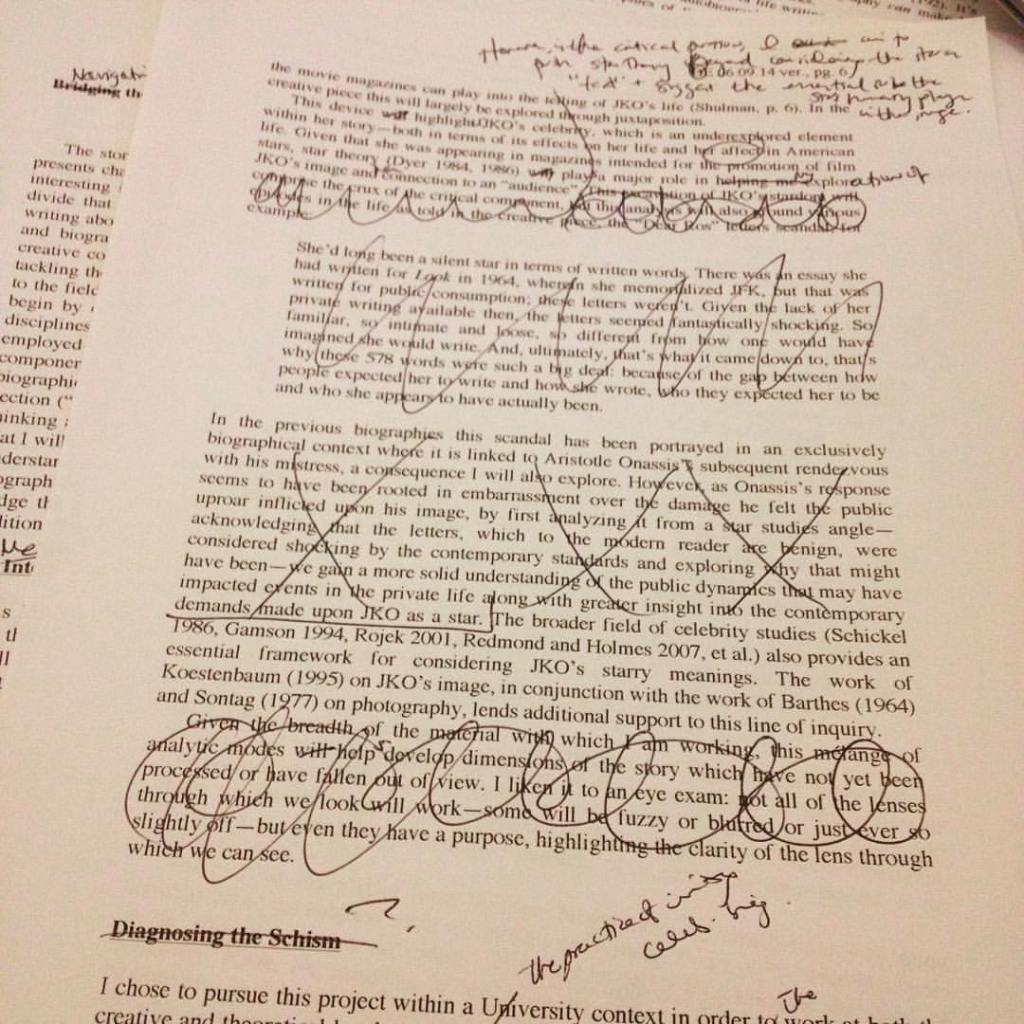 Navigati
Bridging th
The stor
presents cha
interesting
divide that
writing abo
and biogra
creative co
tackling th
to the fielc
begin by
disciplines
employed
componer
biographi
ection ("
inking
at I will
derstar
ograph
dge th
lition
Me
Int
s
tl
06 09 14 ver., pg. 6
the movie magazines can play into the telling of JKO's life (Shulman, p. 6). In the
creative piece this will largely be explored through juxtaposition.
This device will highlight JKO's celebrity, which is an underexplored element
within her story—both in terms of its effects on her life and her affect in American
life. Given that she was appearing in magazines intended for the promotion of film
stars, star theory (Dyer 1984, 1986) will play a major role in helping me explor ation of
JKO's image and connection to an "audience". This excavation of JKO's stardom will
comprise the crux of the critical component, but this analysis will also ground various
episodes in the life as told in the creative piece, the "Dear Ros" letters scandal, for
example.
She'd long been a silent star in terms of written words. There was an essay she
had written for Look in 1964, wherein she memorialized JFK, but that was
written for public consumption; these letters weren't. Given the lack of her
private writing available then, the letters seemed fantastically shocking. So
familiar, so intimate and loose, so different from how one would have
imagined she would write. And, ultimately, that's what it came down to, that's
why these 578 words were such a big deal: because of the gap between how
people expected her to write and how she wrote, who they expected her to be
and who she appears to have actually been.
In the previous biographies this scandal has been portrayed in an exclusively
biographical context where it is linked to Aristotle Onassis's subsequent rendezvous
with his mistress, a consequence I will also explore. However, as Onassis's response
seems to have been rooted in embarrassment over the damage he felt the public
uproar inflicted upon his image, by first analyzing it from a star studies angle—
acknowledging that the letters, which to the modern reader are benign, were
considered shocking by the contemporary standards and exploring why that might
have been—we gain a more solid understanding of the public dynamics that may have
impacted events in the private life along with greater insight into the contemporary
demands made upon JKO as a star. The broader field of celebrity studies (Schickel
1986, Gamson 1994, Rojek 2001, Redmond and Holmes 2007, et al.) also provides an
essential framework for considering JKO's starry meanings. The work of
Koestenbaum (1995) on JKO's image, in conjunction with the work of Barthes (1964)
and Sontag (1977) on photography, lends additional support to this line of inquiry.
Given the breadth of the material with which I am working, this mélange of
analytic modes will help develop dimensions of the story which have not yet been
processed or have fallen out of view. I liken it to an eye exam: not all of the lenses
through which we look will work—some will be fuzzy or blurred or just ever so
slightly off—but even they have a purpose, highlighting the clarity of the lens through
which we can see.
the practice of
celeb. biog.
Diagnosing the Schism
The
I chose to pursue this project within a University context in order to work at both th
creative and